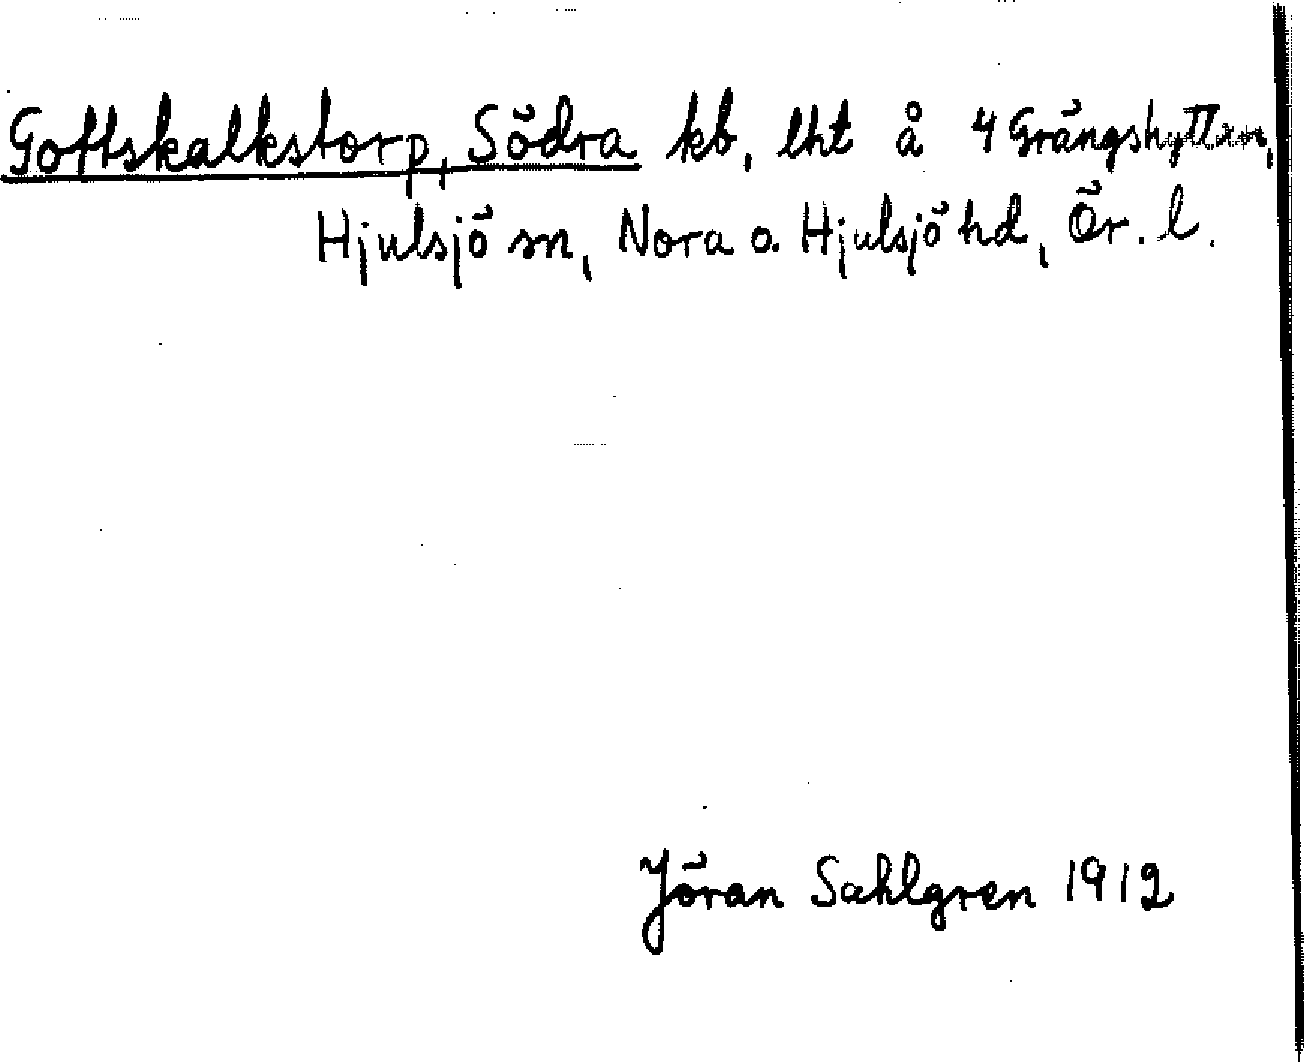 Gottskalkstorp, Södra kb, lht å 4 Grängshyttan,
Hjulsjö sn, Nora o. Hjulsjö hd, Ör. l.
Jöran Sahlgren 1912